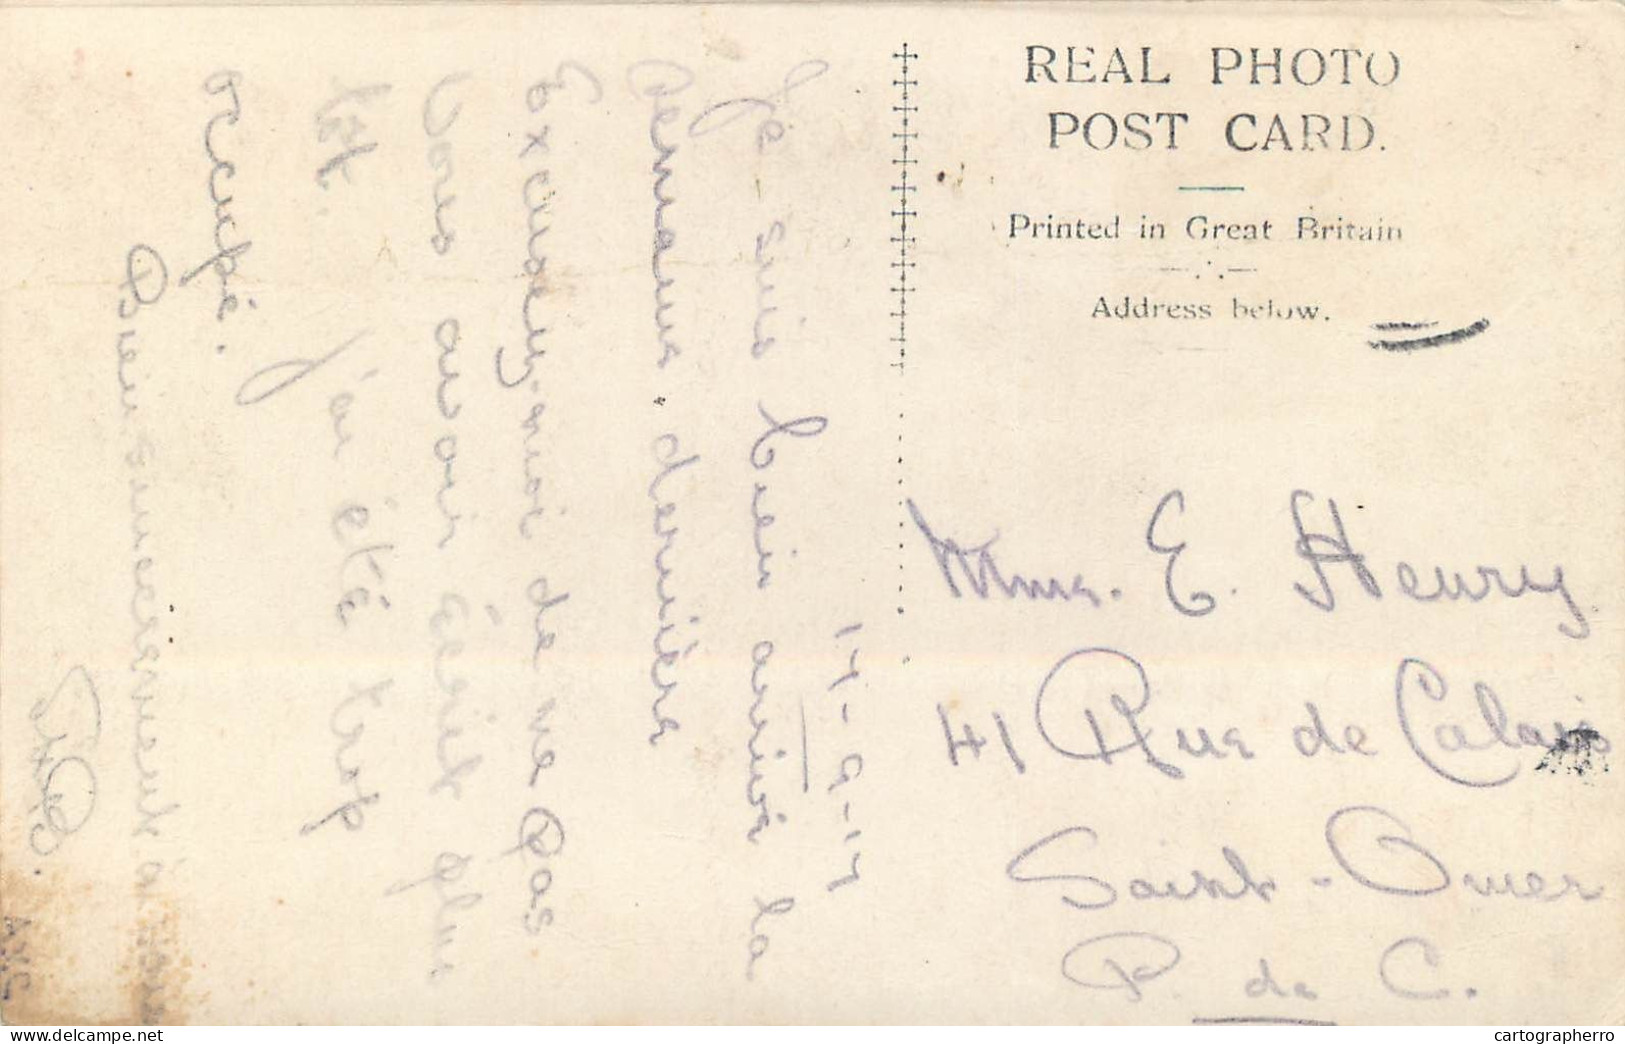 REAL PHOTO
POST CARD.
Printed in Great Britain
Address below.
14-9-17
Je suis bien arrivé la
semaine dernière
Excusez-moi de ne pas
vous avoir écrit plus
tôt. j'ai été trop
occupé.
Bien sincèrement à vous
Mme. E. Henry
41 Rue de Calais
Saint-Omer
P. de C.
cartographerro